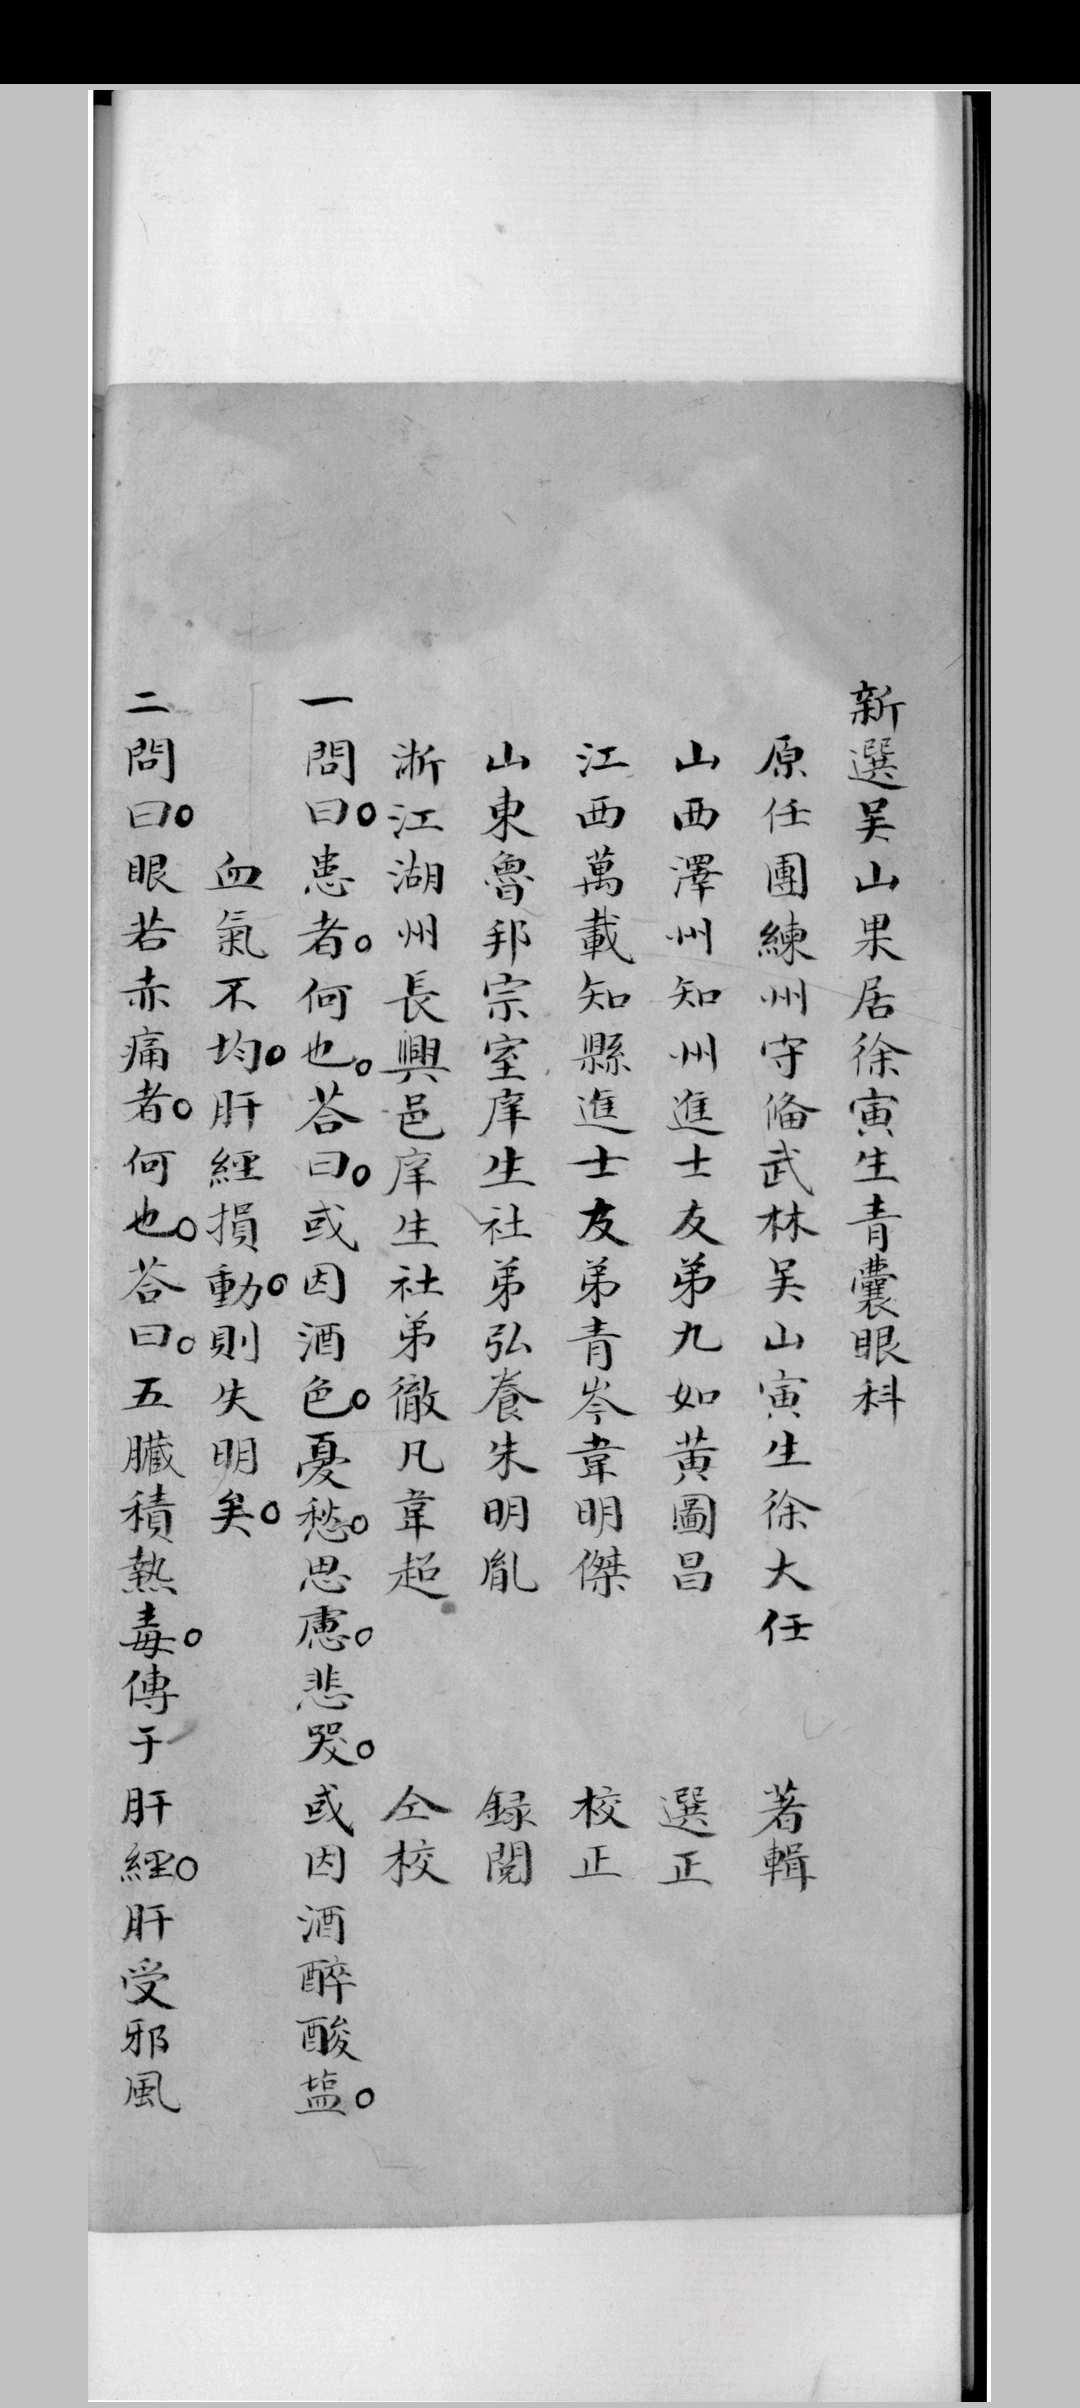 新選吴山果居徐寅生青囊眼科
原任團練州守俻武林吴山寅生徐大任 著輯
山西澤州知州進士友弟九如黄圖昌 選正
江西萬載知縣進士友弟青岑韋明傑 校正
山東魯邦宗室庠生社弟弘養朱明胤 録閲
淅江湖州長興邑庠生社弟徹凡韋超 仝校
一問曰。患者。何也。荅曰。或因酒色。憂愁。思慮。悲哭。或因酒醉酸塩。
血氣不均。肝經損動。則失明矣。
二問曰。眼若赤痛者。何也。荅曰。五臓積熱毒。傳于肝經。肝受邪風